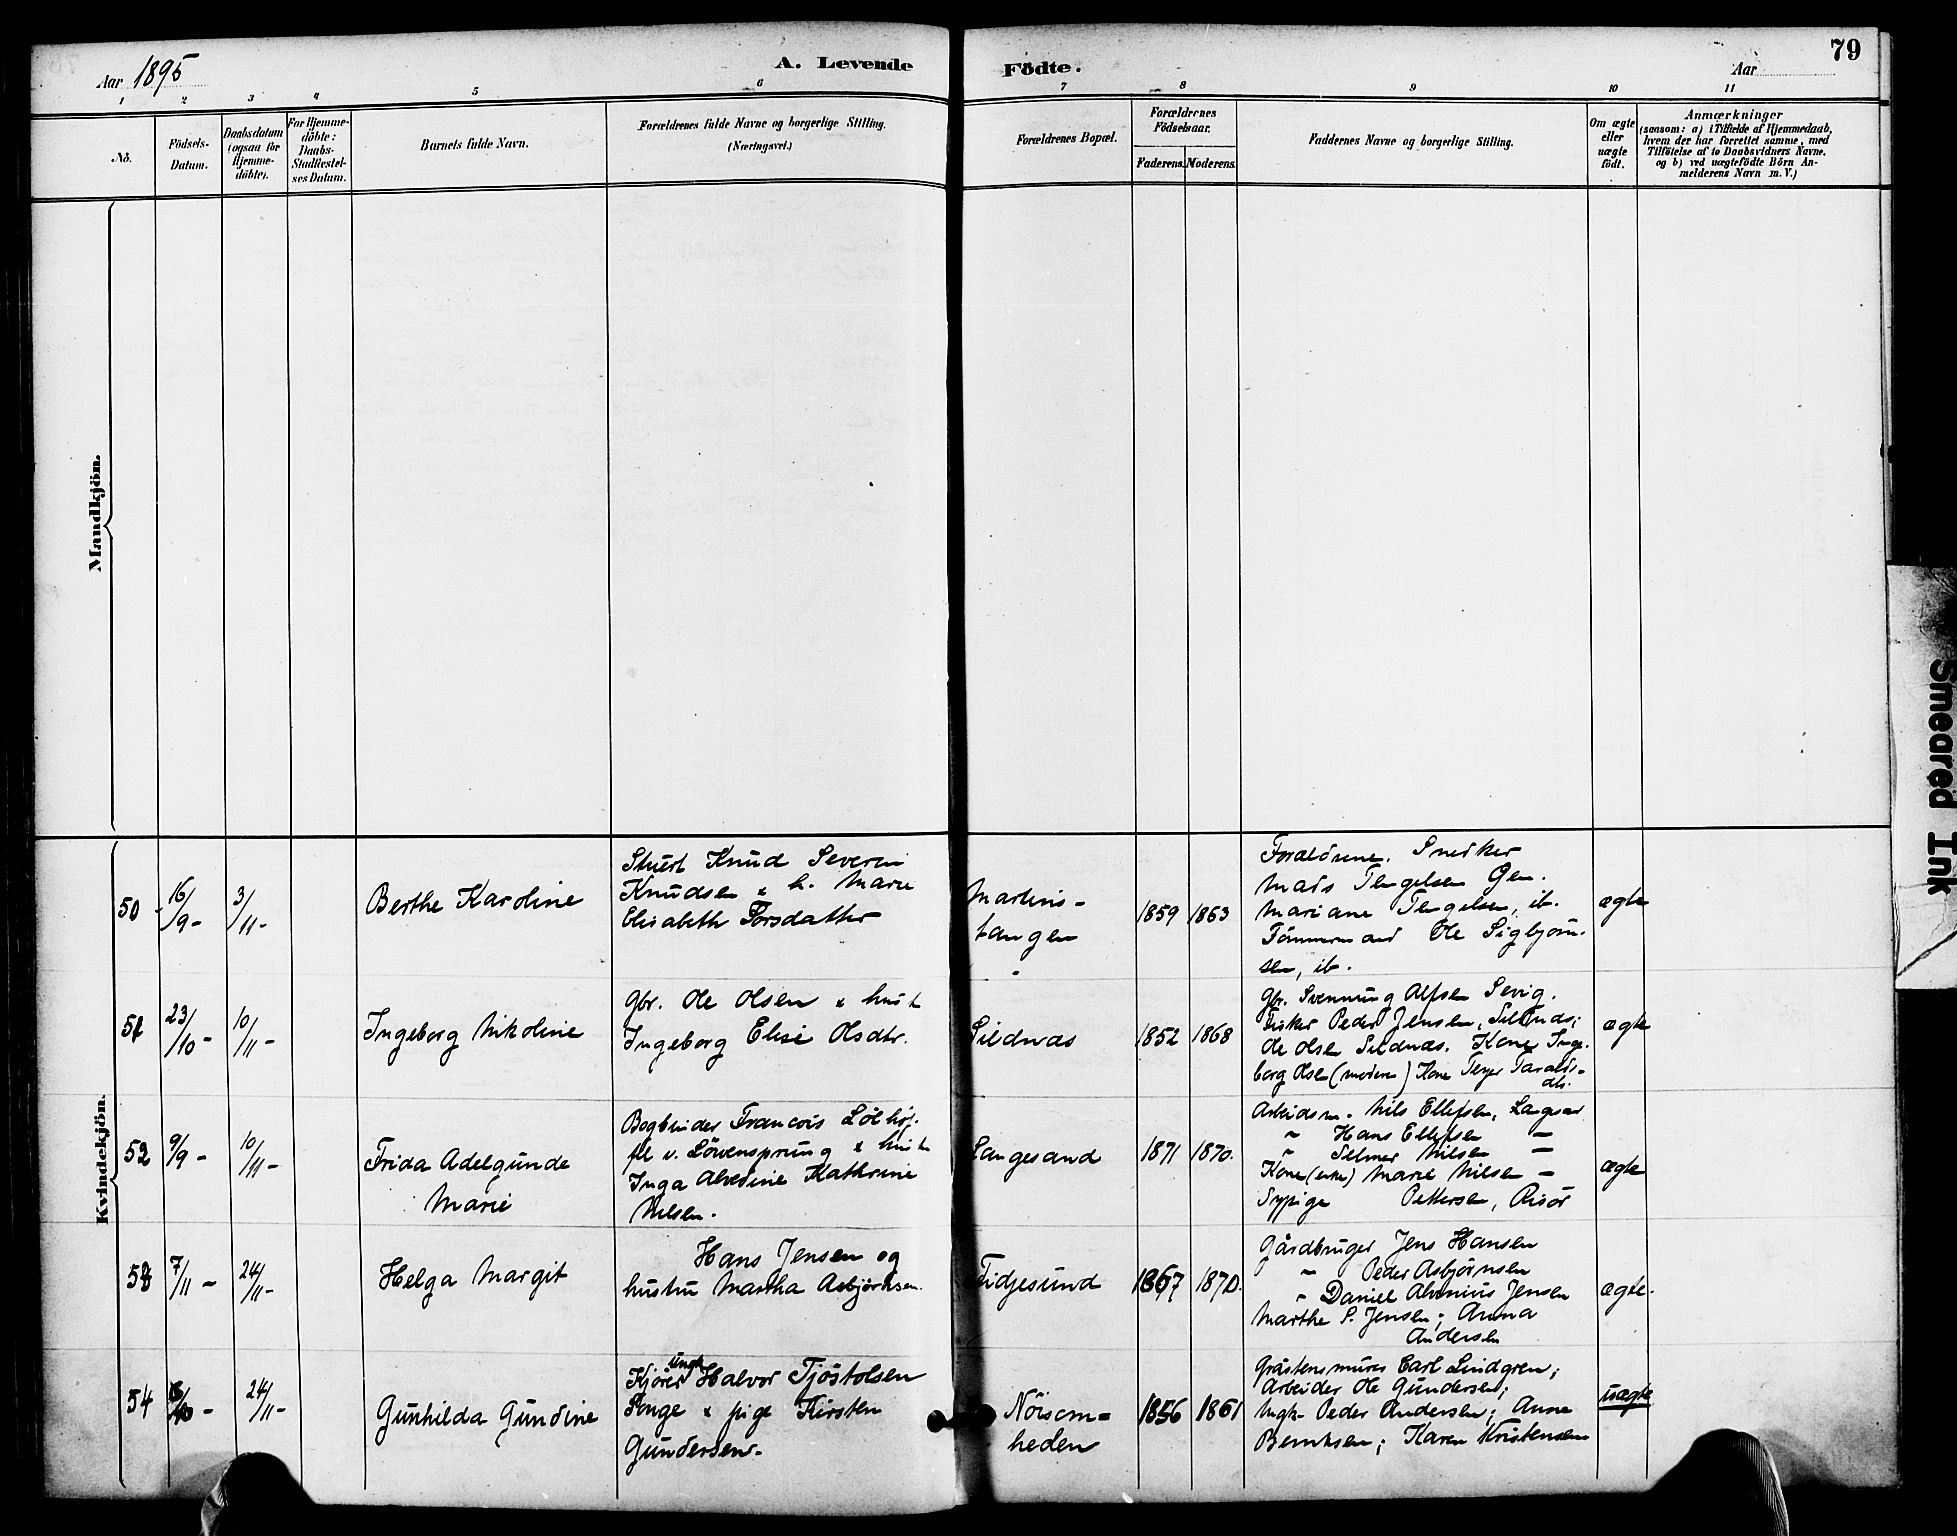 Aar 1895
A. Levende Födte.
Aar
79
1 2 3 4 5 6 7 8 9 10 11
No.
Födsels-
Datum.
Daabsdatum
(ogsaa för
Hjemme-
döbte).
For Hjemme-
döbte:
Daabs-
Stadfæstel-
ses Datum.
Barnets fulde Navn.
Forældrenes fulde Navne og borgerlige Stilling.
(Næringsvei.)
Forældrenes Bopæl.
Forældrenes
Födselsaar.
Faderens. Moderens.
Faddernes Navne og borgerlige Stilling.
Om ægte
eller
uægte
født.
Anmærkninger
(saasom: a) i Tilfælde af Hjemmedaab,
hvem der har forrettet samme, med
Tilföielse af to Daabsvidners Navne.
og b) ved uægtefödte Börn An-
melderens Navn m. V.)
Mandkjön.
Kvindekjön.
50
16/9-
3/11-
Berthe Karoline
Knud Severin
Knudsen & h. Marie
Elisabeth
Martins-
tangen
1859 1863
Forældrene. Snedker
Mads
Mariane
Tömmermand Ole Sigbjörn-
sen, ib.
ægte
51
23/10-
10/11-
Ingeborg Nikoline
Gbr. Ole Olsen & hust
Ingeborg Elise Olsdtr.
Sildnæs
1852 1868
Gbr. Svennung Alfsen Sevig.
Fisker Peder Jensen,
Ole Olsen Sildnæs. Kone Inge-
borg Olsen (moderen) Kone
ægte
52
9/9-
10/11-
Frida Adelgunde
Marie
Bogbinder Francois
v. Löwensprung & hust
Inga Alvedine Kathrine
Nilsen.
Langesand
1871 1870.
Arbeidsm. Nils Ellefsen, Langesand
" Hans Ellefsen —
" Selmer Nilsen —
Kone (enke) Marie Nilsen —
Sypige Pettersen, Risør
ægte
53
7/11-
24/11-
Helga Margit
Hans Jensen og
hustru Martha Asbjörnsen.
Fidjesund
1867 1870.
Gårdbruger Jens Hansen
" Peder Asbjörnsen
" Daniel Alvinius Jensen
Marthe S. Jensen; Anna
Andersen
ægte.
54
24/11-
Gunhilda Gundine
ungk
Kjörer Halvor Tjöstolsen
Songe & pige Kirsten
Gundersen.
Nöisom=
heden
1856 1861
Gråstensmurer Carl Lindgren;
Arbeider Ole Gundersen;
Ungk. Peder Andersen; Anne
Berntsen; Karen Kristensen
uægte
Smeared Ink